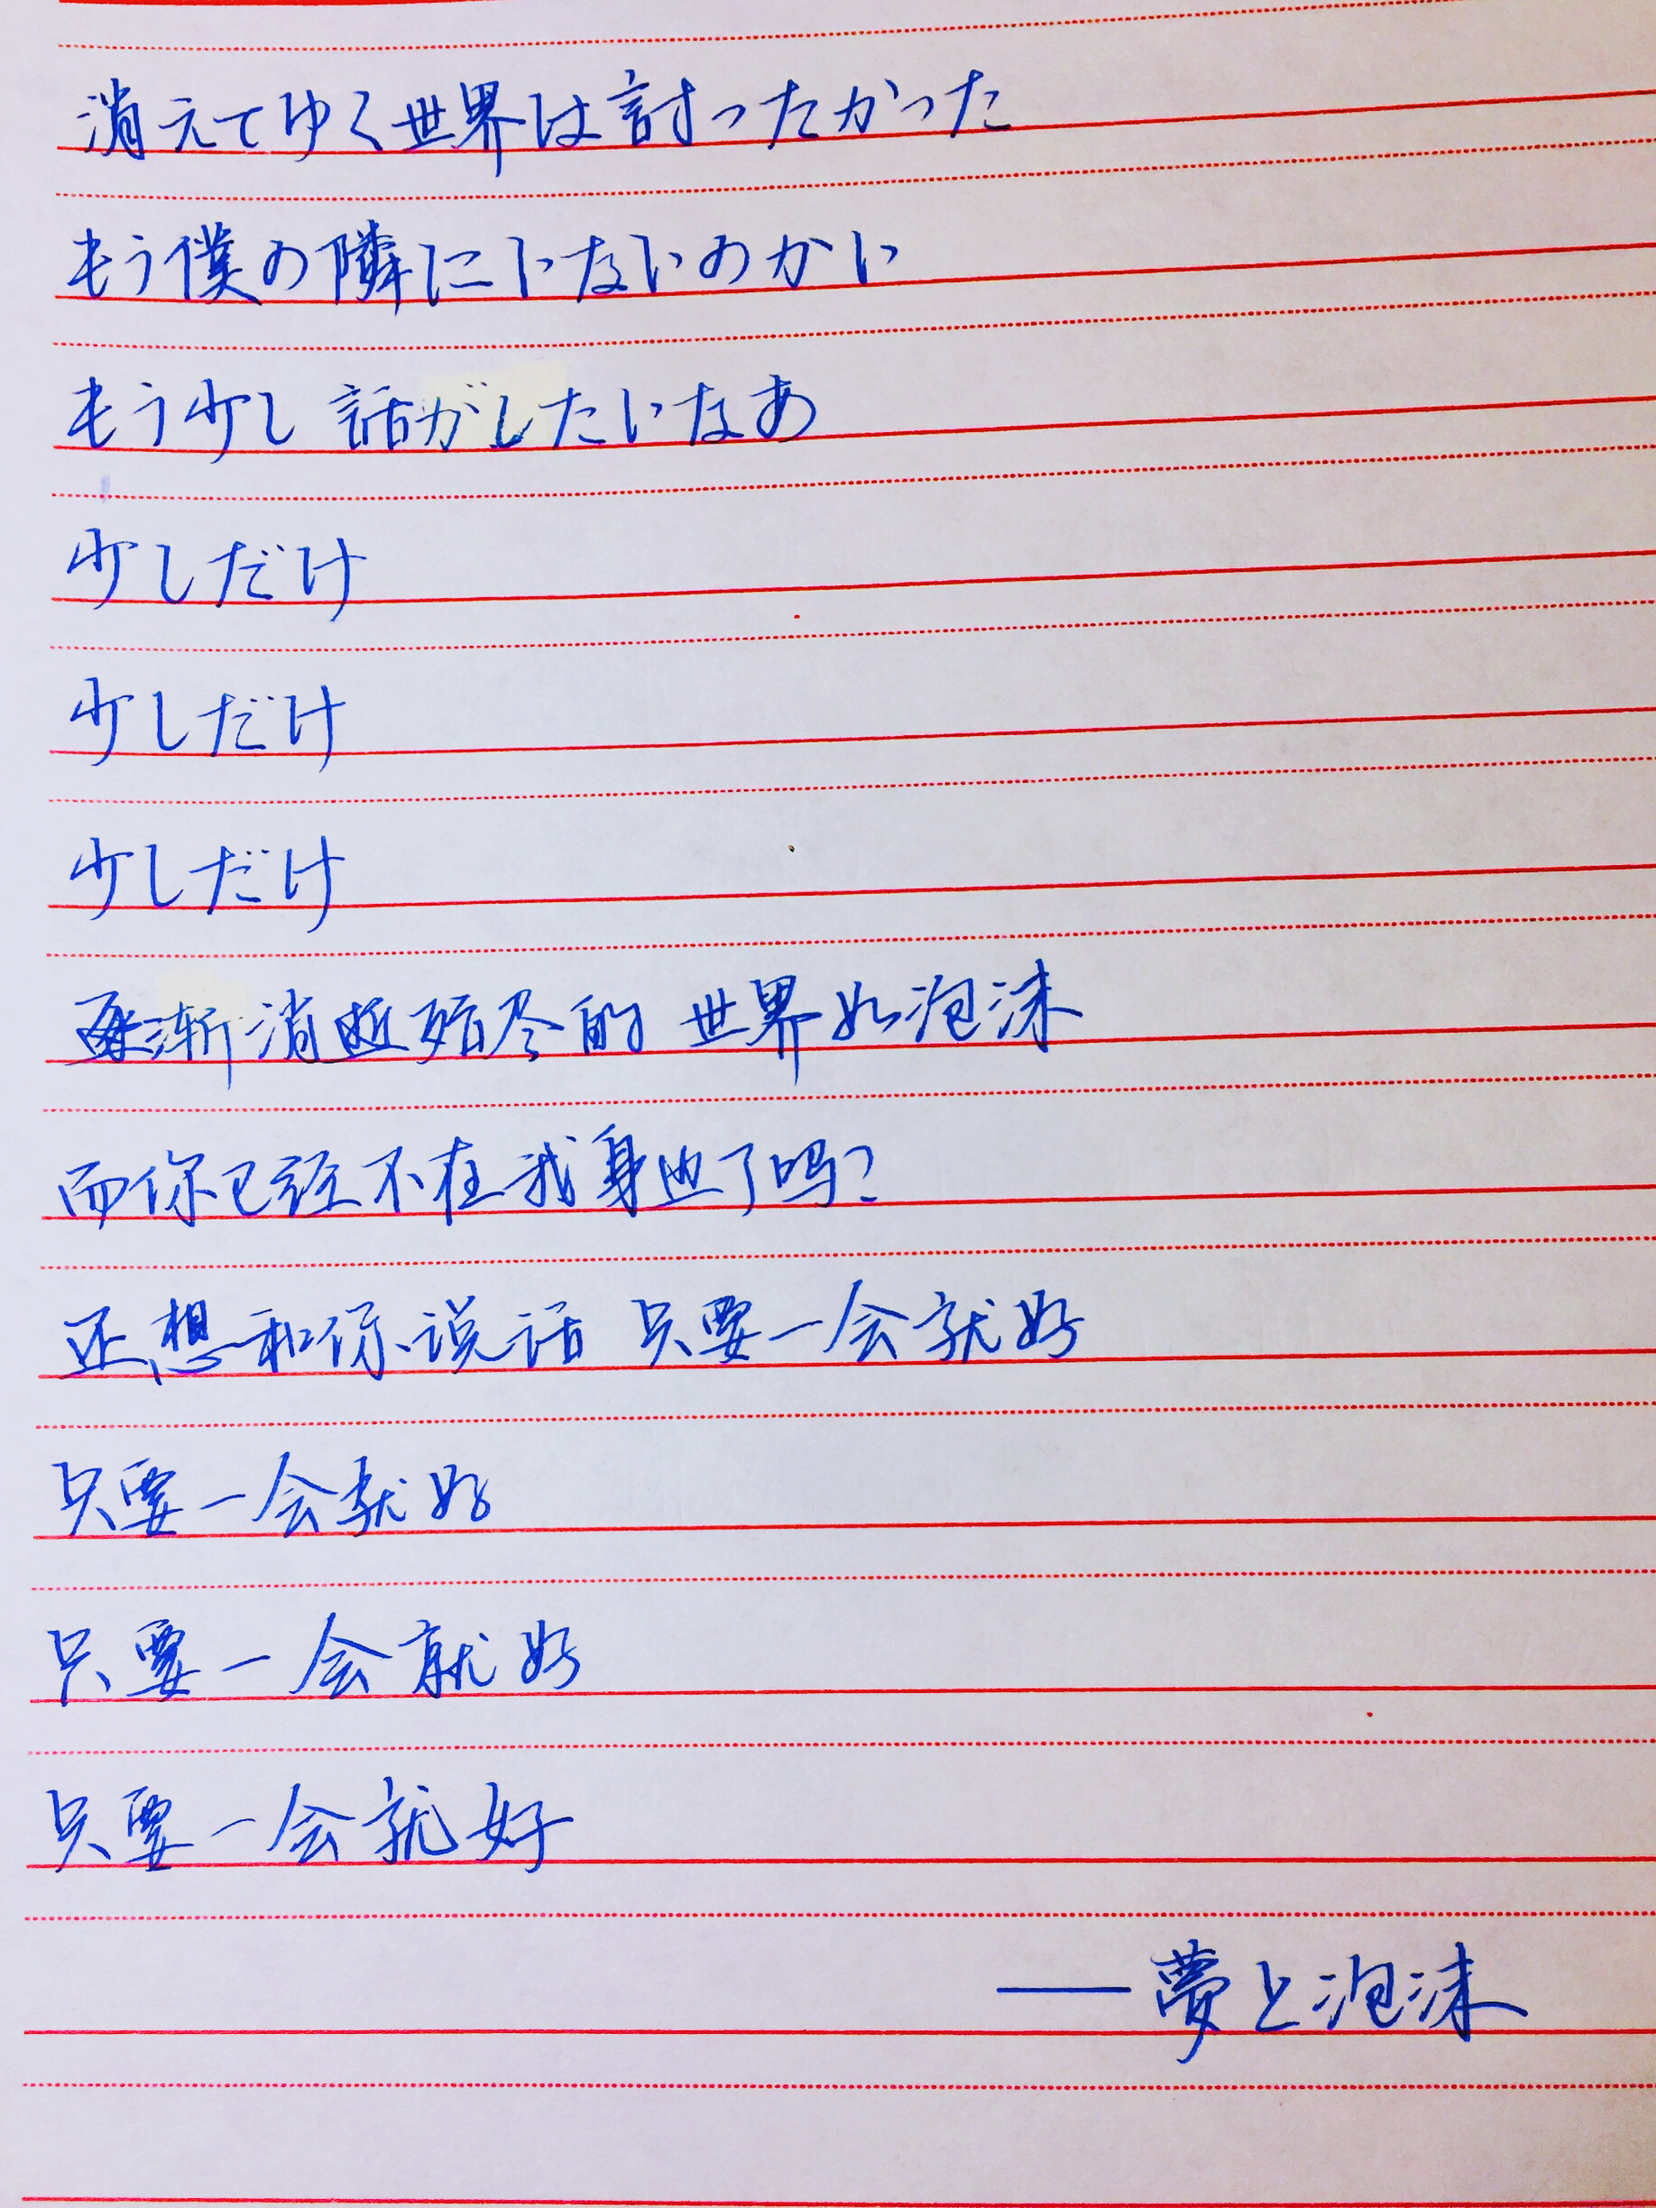 消えてゆく世界は討ったかった
もう僕の隣にいないのかい
もう少し 話がしたいなあ
少しだけ
少しだけ
少しだけ
逐渐消逝殆尽的 世界如泡沫
而你已经不在我身边了吗?
还想和你说话 只要一会就好
只要一会就好
只要一会就好
只要一会就好
——夢と泡沫